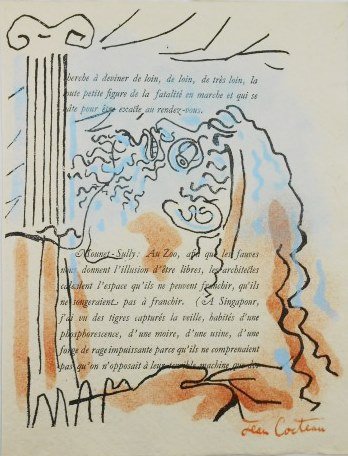 herche à deviner de loin, de loin, de très loin, la
ute petite figure de la fatalité en marche et qui se
pour être exacte au rendez-vous.
Mounet-Sully: Au Zoo, afin que les fauves
nous donnent l'illusion d'être libres, les architectes
calculent l'espace qu'ils ne peuvent franchir, qu'ils
ne songeraient pas à franchir. (A Singapour,
j'ai vu des tigres capturés la veille, habités d'une
phosphorescence, d'une moire, d'une usine, d'une
forge de rage impuissante parce qu'ils ne comprenaient
pas qu'on n'opposait à leur terrible machine que des
Jean Cocteau